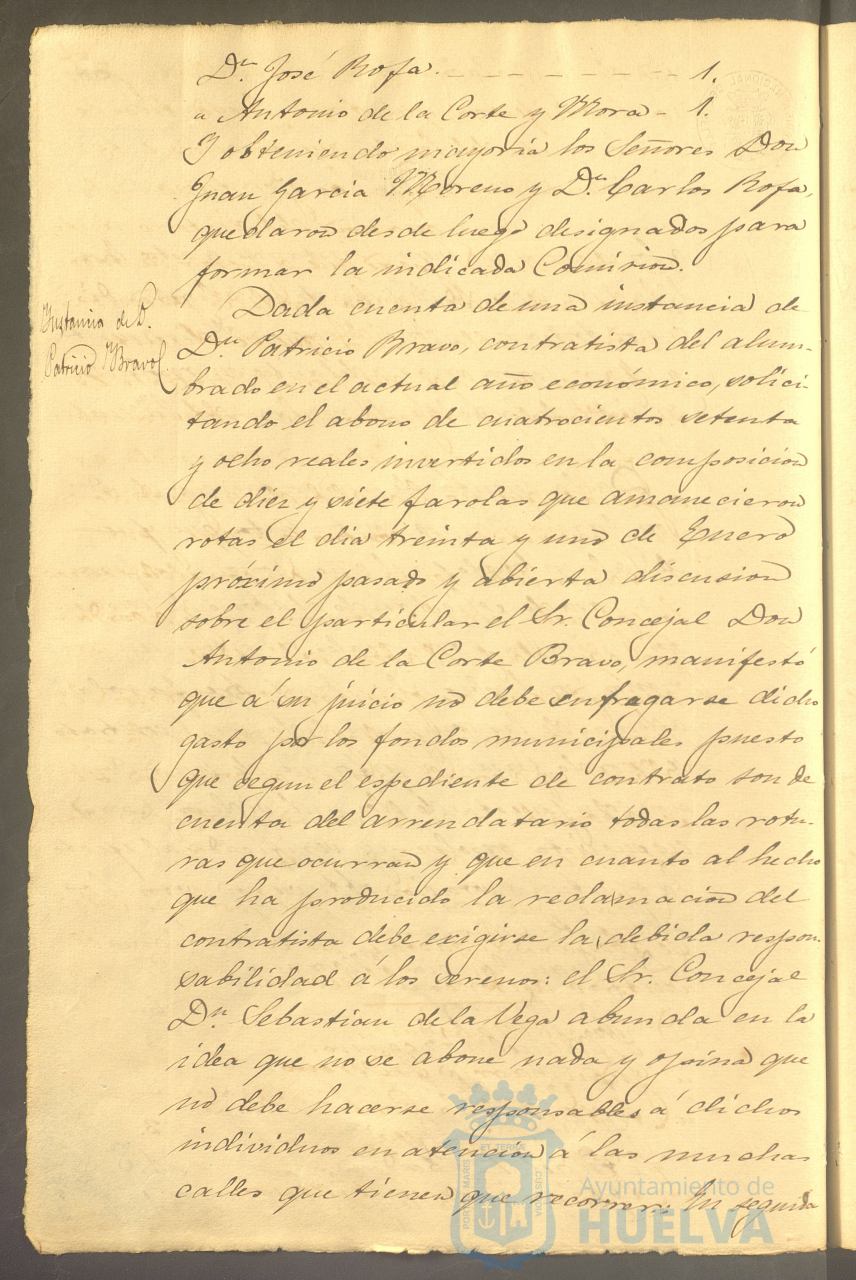 Dn. José Rofa. - - - - - - - 1.
" Antonio de la Corte y Mora - 1.
Y obteniendo mayoria los Señores Don
Juan Garcia Moreno y Dn. Carlos Rofa,
quedaron desde luego designados para
formar la indicada Comision.
Instancia de D.
Patricio Bravo
Dada cuenta de una instancia de
Dn. Patricio Bravo, contratista del alum-
brado en el actual año económico, solici-
tando el abono de cuatrocientos setenta
y ocho reales invertidos en la composicion
de diez y siete farolas que amanecieron
rotas el dia treinta y uno de Enero
próximo pasado y abierta discusion
sobre el particular el Sr. Concejal Don
Antonio de la Corte Bravo, manifestó
que á su juicio no debe sufragarse dicho
gasto por los fondos municipales puesto
que segun el espediente de contrato son de
cuenta del arrendatario todas las rotu-
ras que ocurran y que en cuanto al hecho
que ha producido la reclamacion del
contratista debe exigirse la debida respon-
sabilidad á los serenos: el Sr. Concejal
Dn. Sebastian de la Vega abunda en la
idea que no se abone nada y opina que
no debe hacerse responsables á dichos
individuos en atencion á las muchas
calles que tienen que recorrer. En seguida
PORTUS MARIS ET TERRAE CUSTODIA
Ayuntamiento de
HUELVA